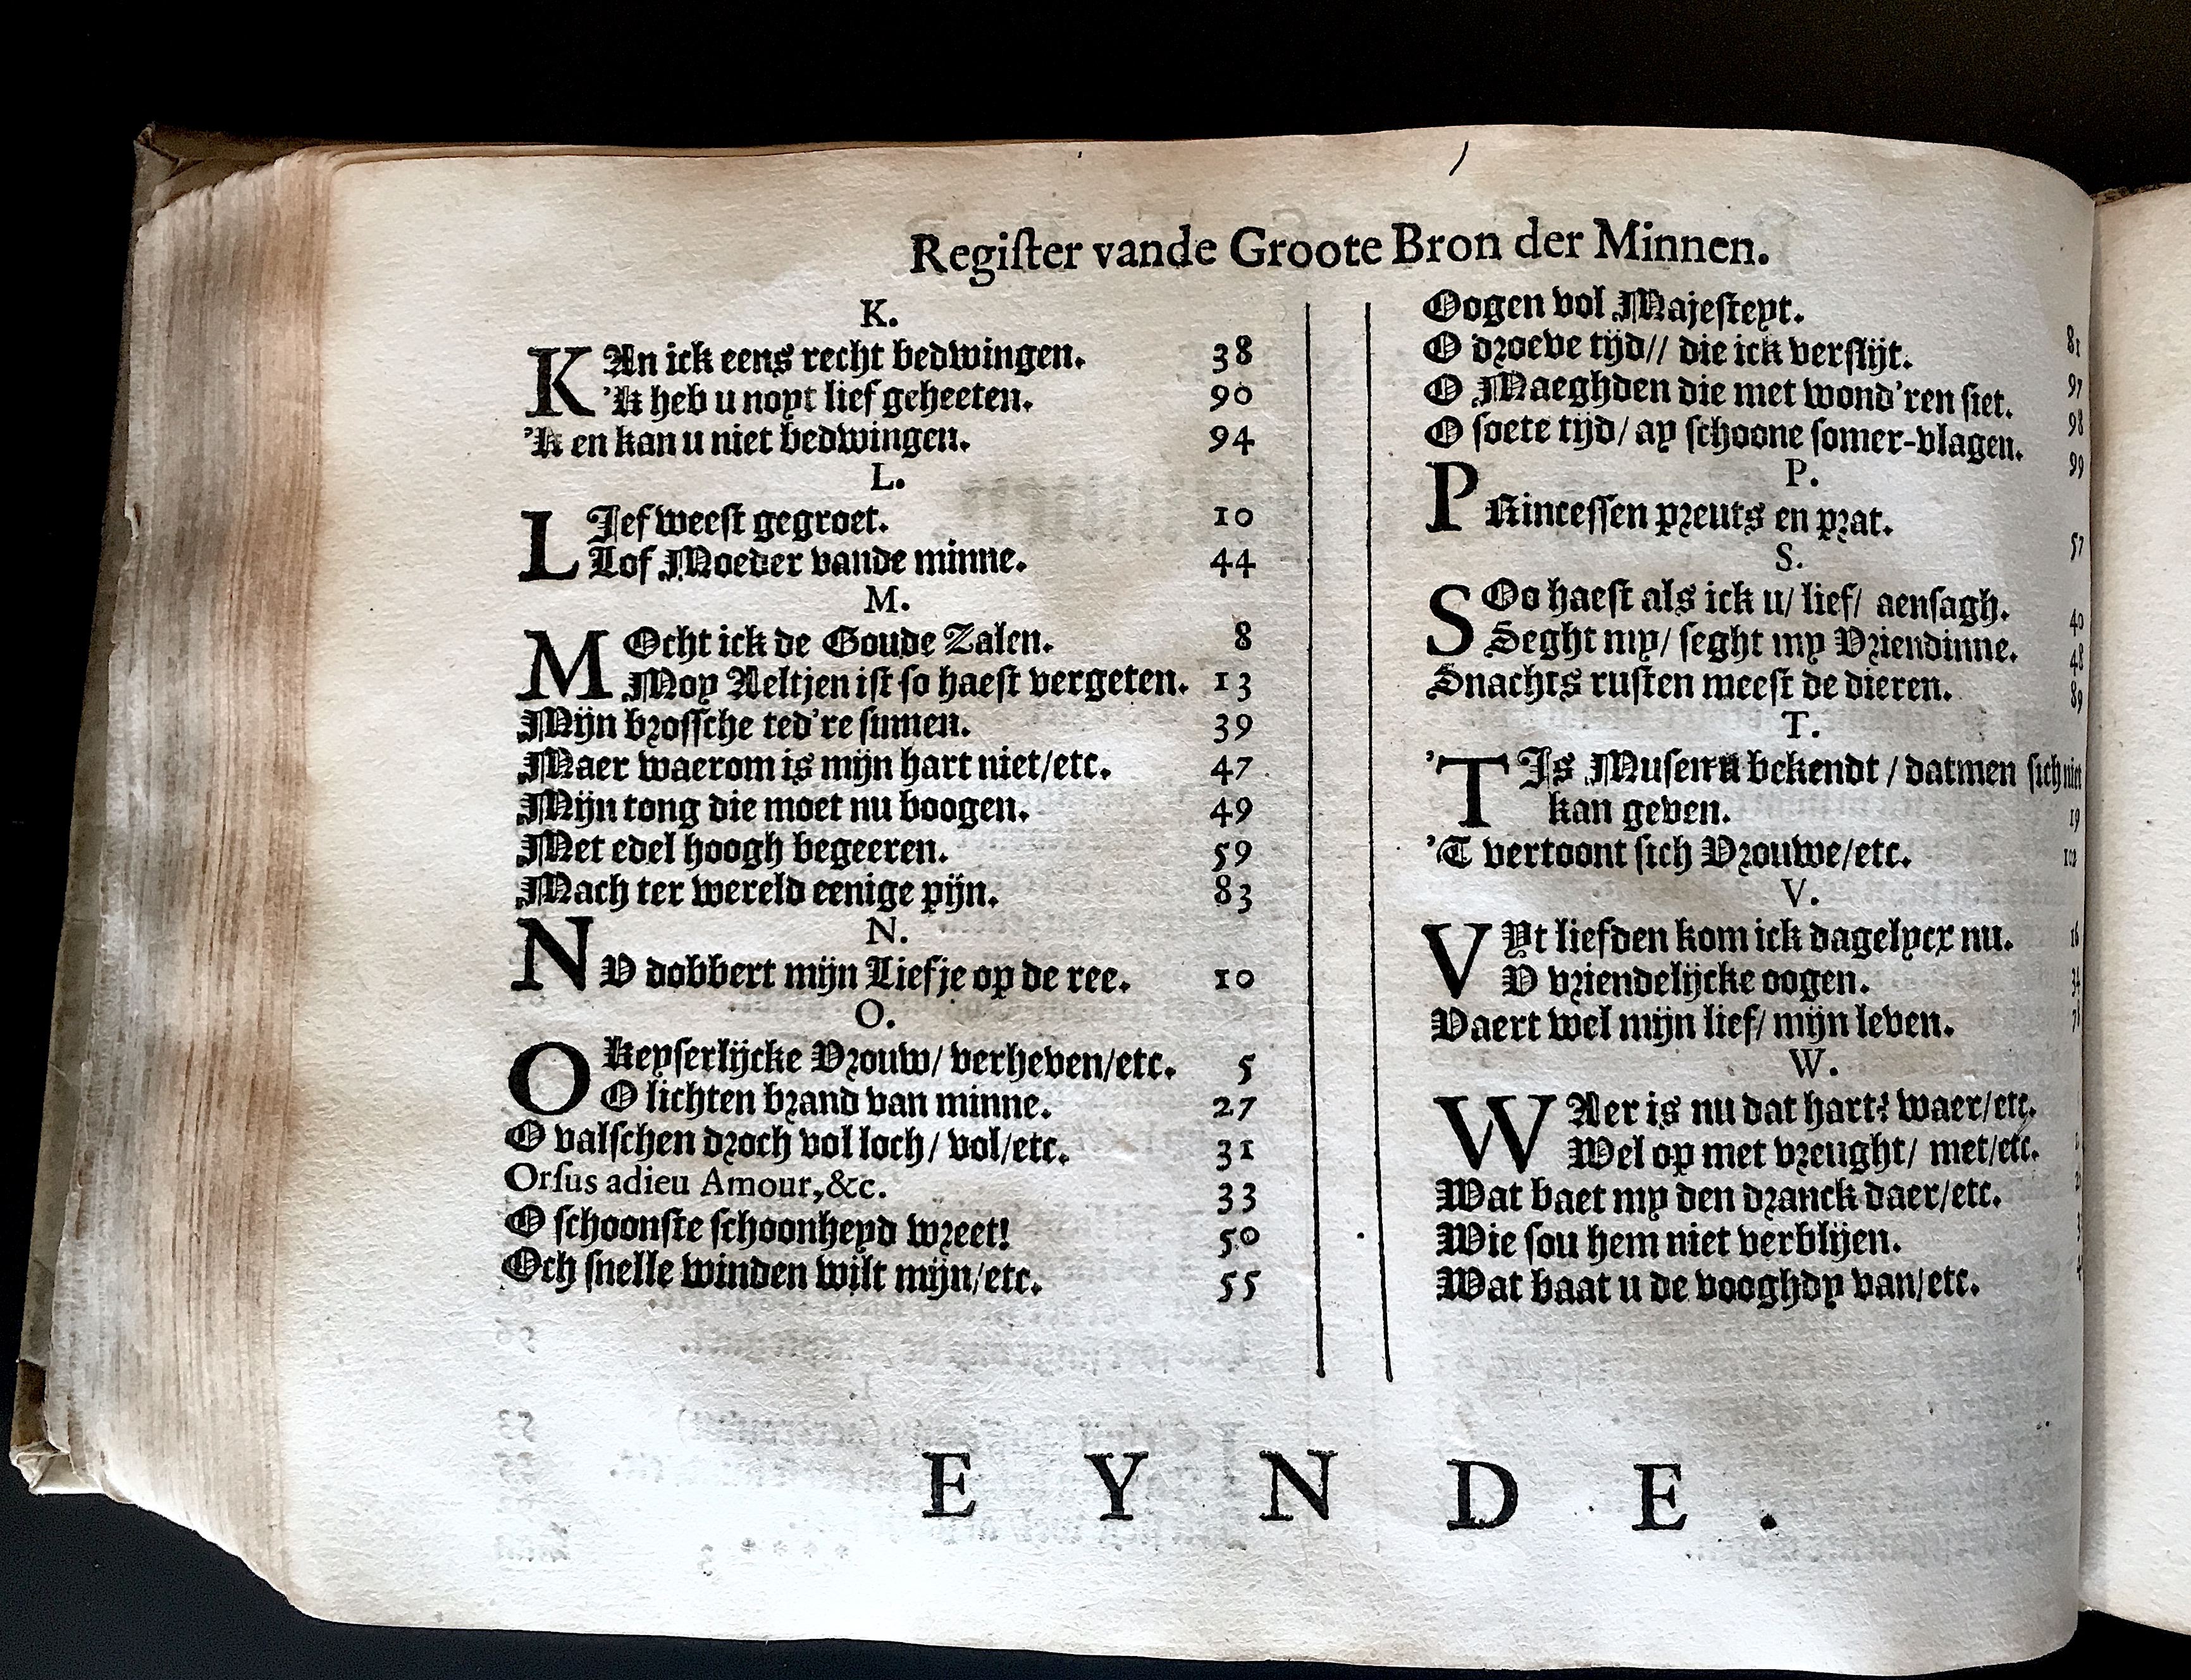 Regiſter vande Groote Bron der Minnen.
K.
KAn ick eens recht bedwingen. 38
'K heb u noyt lief geheeten. 90
'K en kan u niet bedwingen. 94
L.
LIef weeſt gegroet. 10
Lof Moeder vande minne. 44
M.
MOcht ick de Goude Zalen. 8
Moy Aeltjen iſt ſo haeſt vergeten. 13
Mijn broſſche ted're ſinnen. 39
Maer waerom is mijn hart niet/etc. 47
Mijn tong die moet nu boogen. 49
Met edel hoogh begeeren. 59
Mach ter wereld eenige pijn. 83
N.
NU dobbert mijn Liefje op de ree. 10
O.
O Keyſerlijcke Vrouw/ verheven/etc. 5
O lichten brand van minne. 27
O valſchen droch vol loch/ vol/etc. 31
Orſus adieu Amour,&c. 33
O ſchoonſte ſchoonheyd wreet! 50
Och ſnelle winden wilt mijn/etc. 55
Oogen vol Majeſteyt. 81
O droeve tijd// die ick verſlijt. 97
O Maeghden die met wond'ren ſiet. 98
O ſoete tijd/ ay ſchoone ſomer-vlagen. 99
P.
PRinceſſen preuts en prat. 57
S.
SOo haeſt als ick u/ lief/ aenſagh. 40
Seght my/ ſeght my Vriendinne. 48
Snachts ruſten meeſt de dieren. 89
T.
'T Is Muſen bekendt / datmen ſich niet
kan geven. 19
'T vertoont ſich Vrouwe/etc.
V.
VYt liefden kom ick dagelycx nu. 16
U vriendelijcke oogen.
Vaert wel mijn lief/ mijn leven.
W.
WAer is nu dat hart? waer/etc.
Wel op met vreught/ met/etc.
Wat baet my den dranck daer/etc.
Wie ſou hem niet verblijen.
Wat baat u de vooghdy van/etc.
EYNDE.